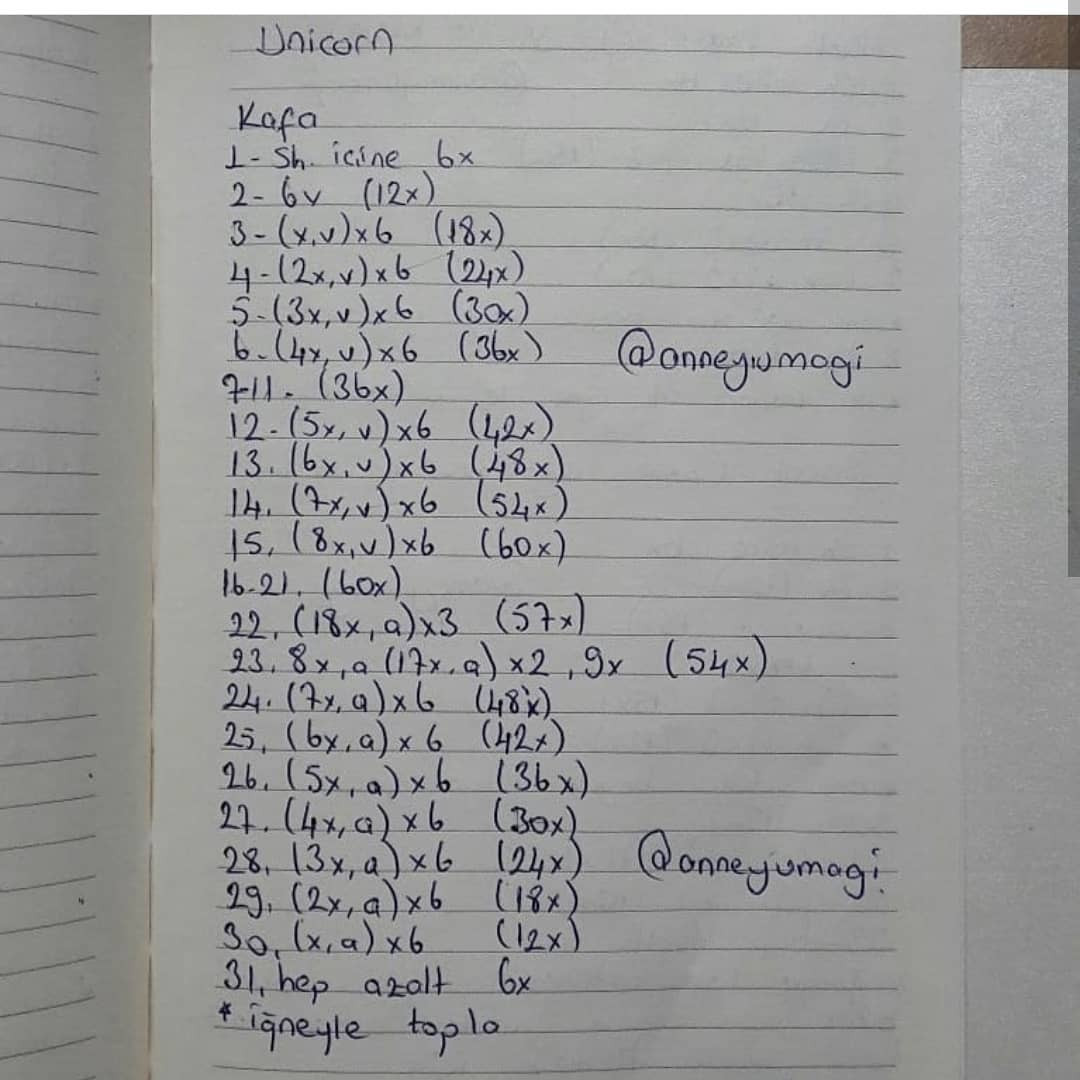 Unicorn
Kafa
1- Sh. içine 6x
2- 6v (12x)
3- (x,v)x6 (18x)
4-(2x,v)x6 (24x)
5-(3x,v)x6 (30x)
6-(4x,v)x6 (36x) @anneyumagi
7-11- (36x)
12-(5x, v)x6 (42x)
13. (6x,v)x6 (48x)
14. (7x,v)x6 (54x)
15, (8x,v)x6 (60x)
16-21, (60x)
22, (18x,a)x3 (57x)
23, 8x,a (17x,a)x2, 9x (54x)
24. (7x, a)x6 (48x)
25, (6x,a)x6 (42x)
26, (5x,a)x6 (36x)
27. (4x,a)x6 (30x)
28, (3x,a)x6 (24x) @anneyumagi
29, (2x,a)x6 (18x)
30, (x,a)x6 (12x)
31, hep azalt 6x
* iğneyle topla